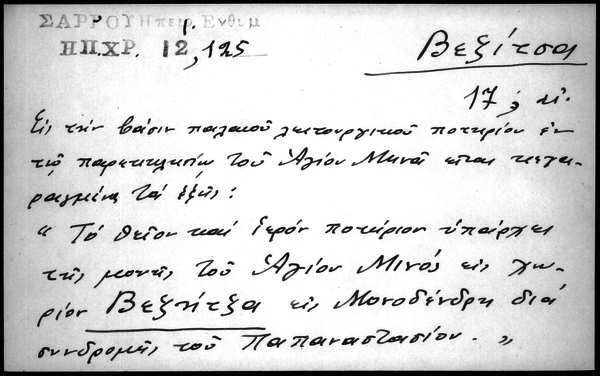 ΣΑΡΡΟΥ Ηπειρ. Ενθυμ
ΗΠ.ΧΡ. 12, 125
Βεζίτσα
17 αἰ.
Εἰς τὴν βάσιν παλαιοῦ λειτουργικοῦ ποτηρίου ἐν
τῷ παρεκκλησίῳ τοῦ Ἁγίου Μηνᾶ εἶναι κεχα-
ραγμένα τὰ ἑξῆς:
“ Τὸ θεῖον καὶ ἱερὸν ποτήριον ὑπάρχει
τῆς μονῆς τοῦ Ἁγίου Μινός εἰς χω-
ρίον Βεζνίτζα εἰς Μονοδένδρι διὰ
συνδρομῆς τοῦ Παπαναστασίου. „